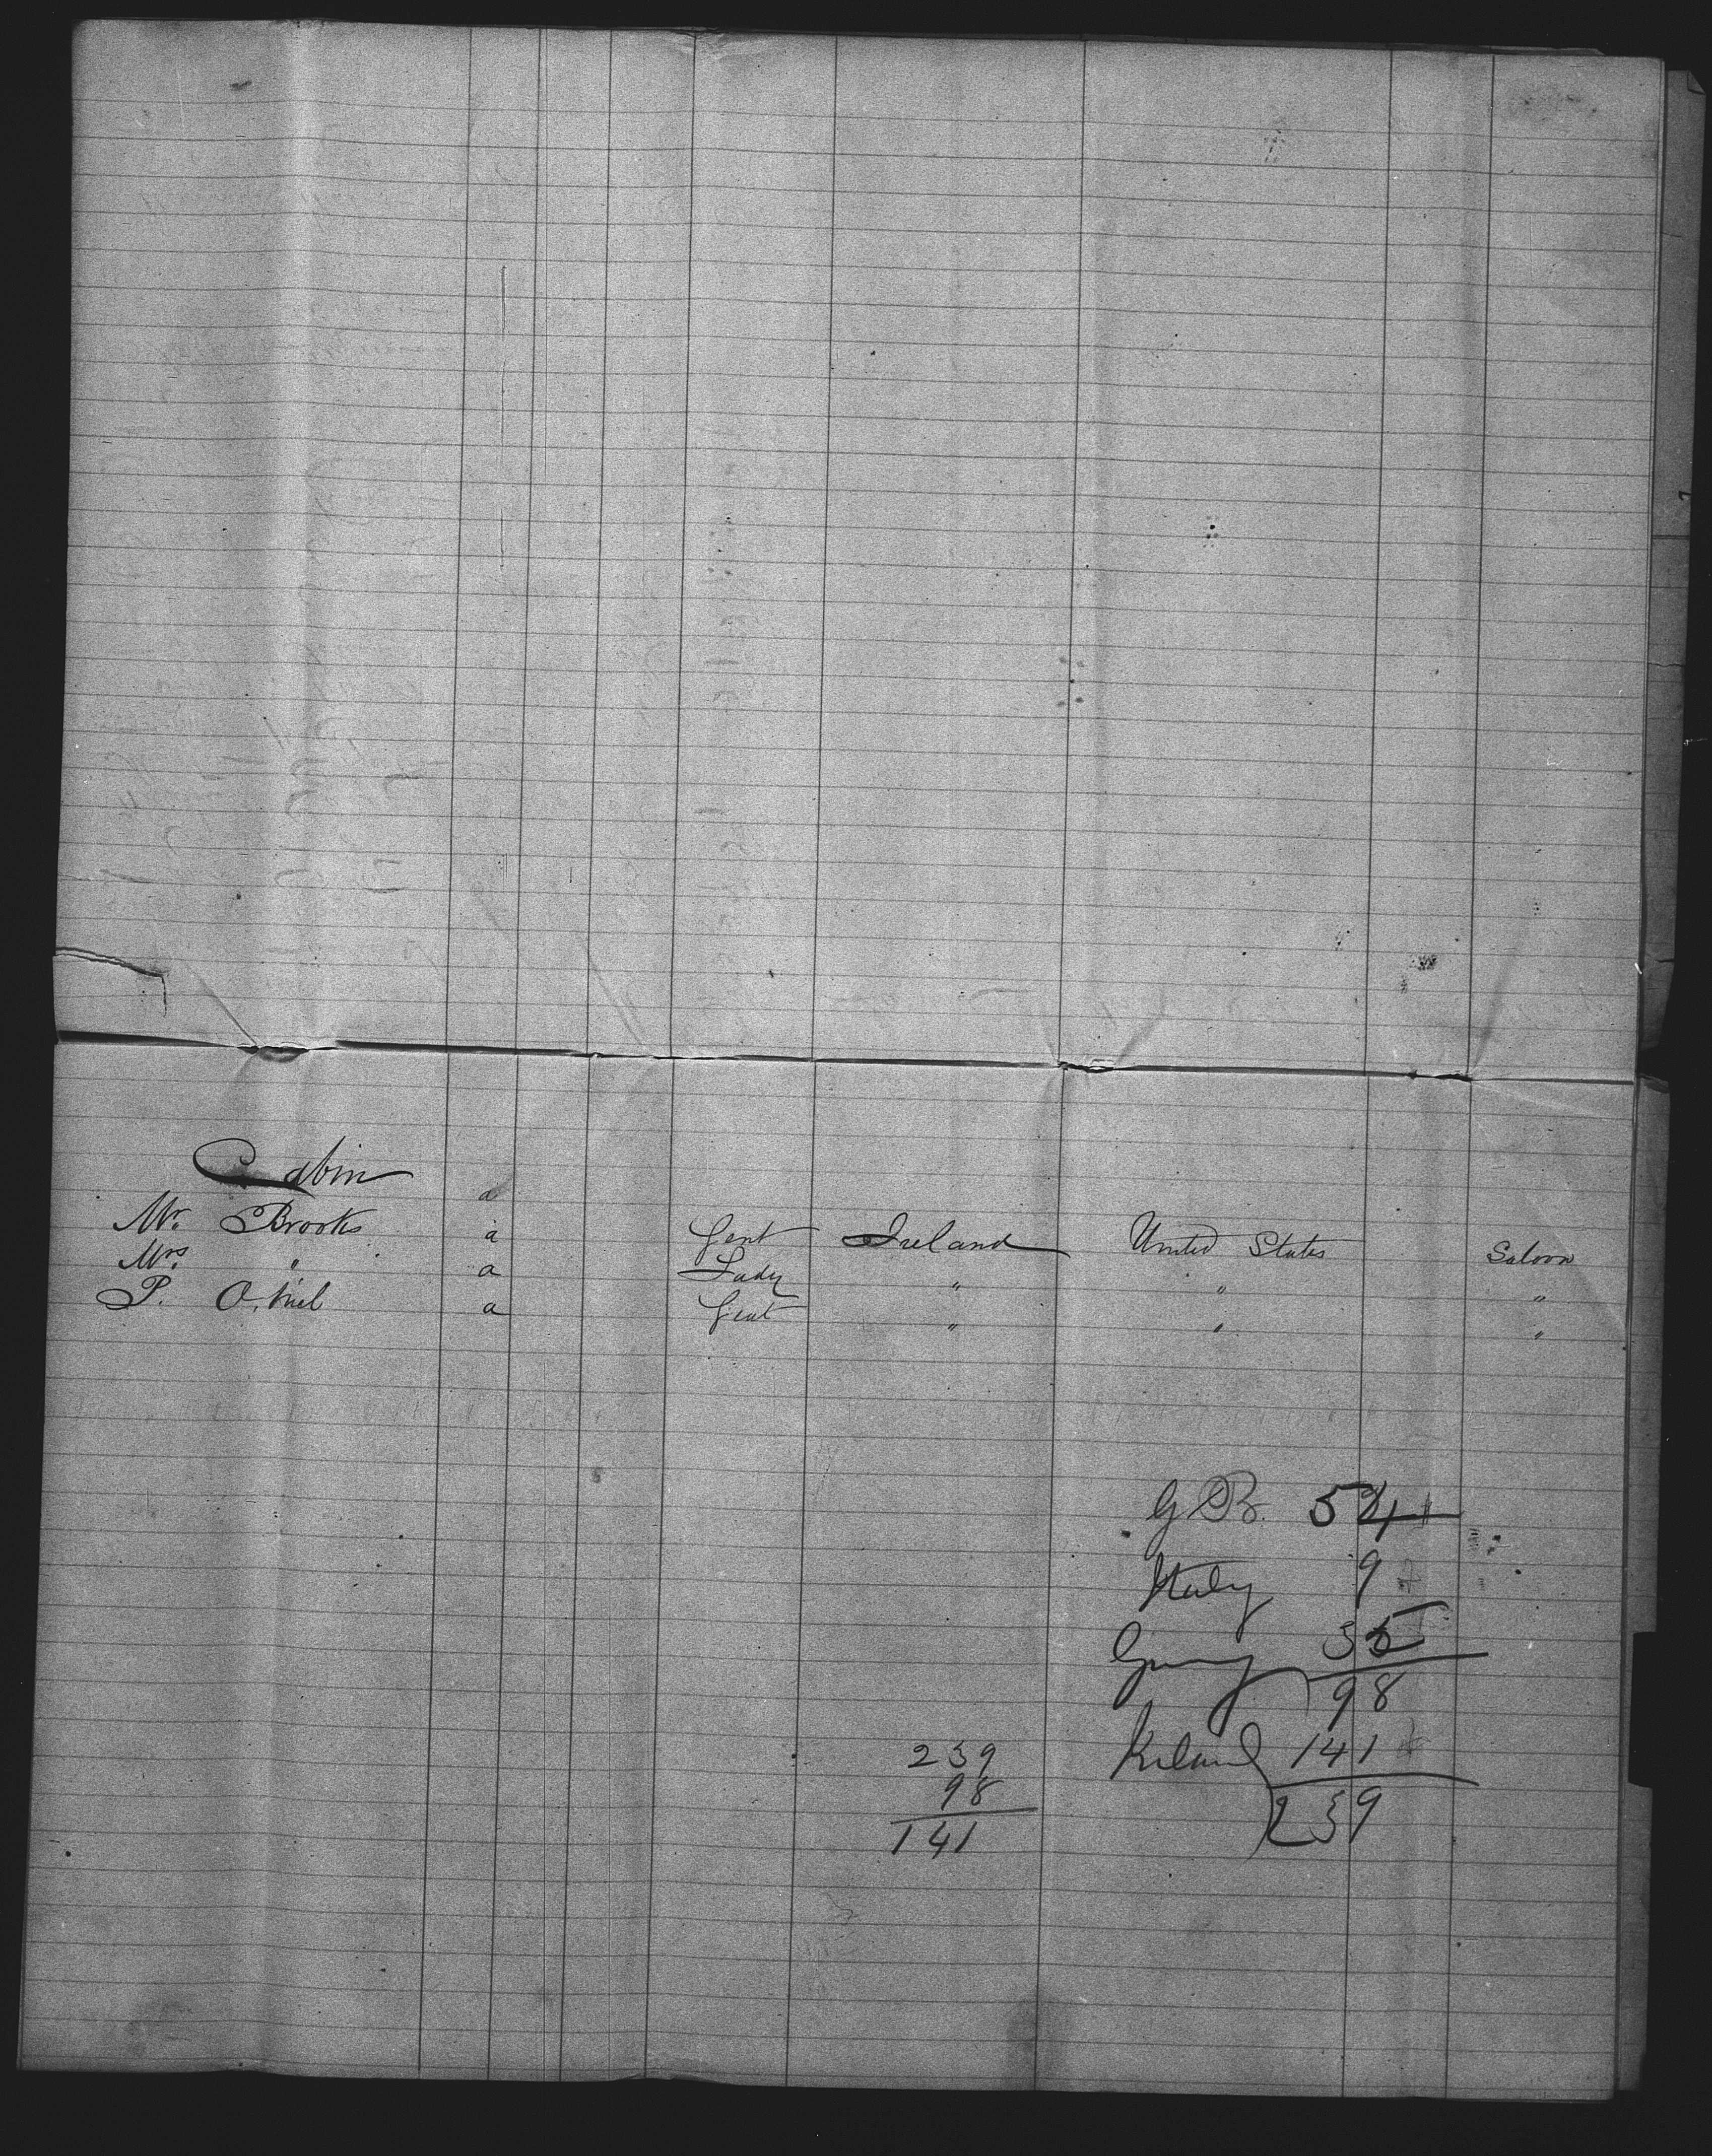 Cabin a
Mr. Brooks a Gent Ireland United States Saloon
Mrs. " a Lady " " "
P. O. Niel a Gent " " "
G B. 54
Italy 9
Germy 35
98
Ireland 141
239
239
98
141